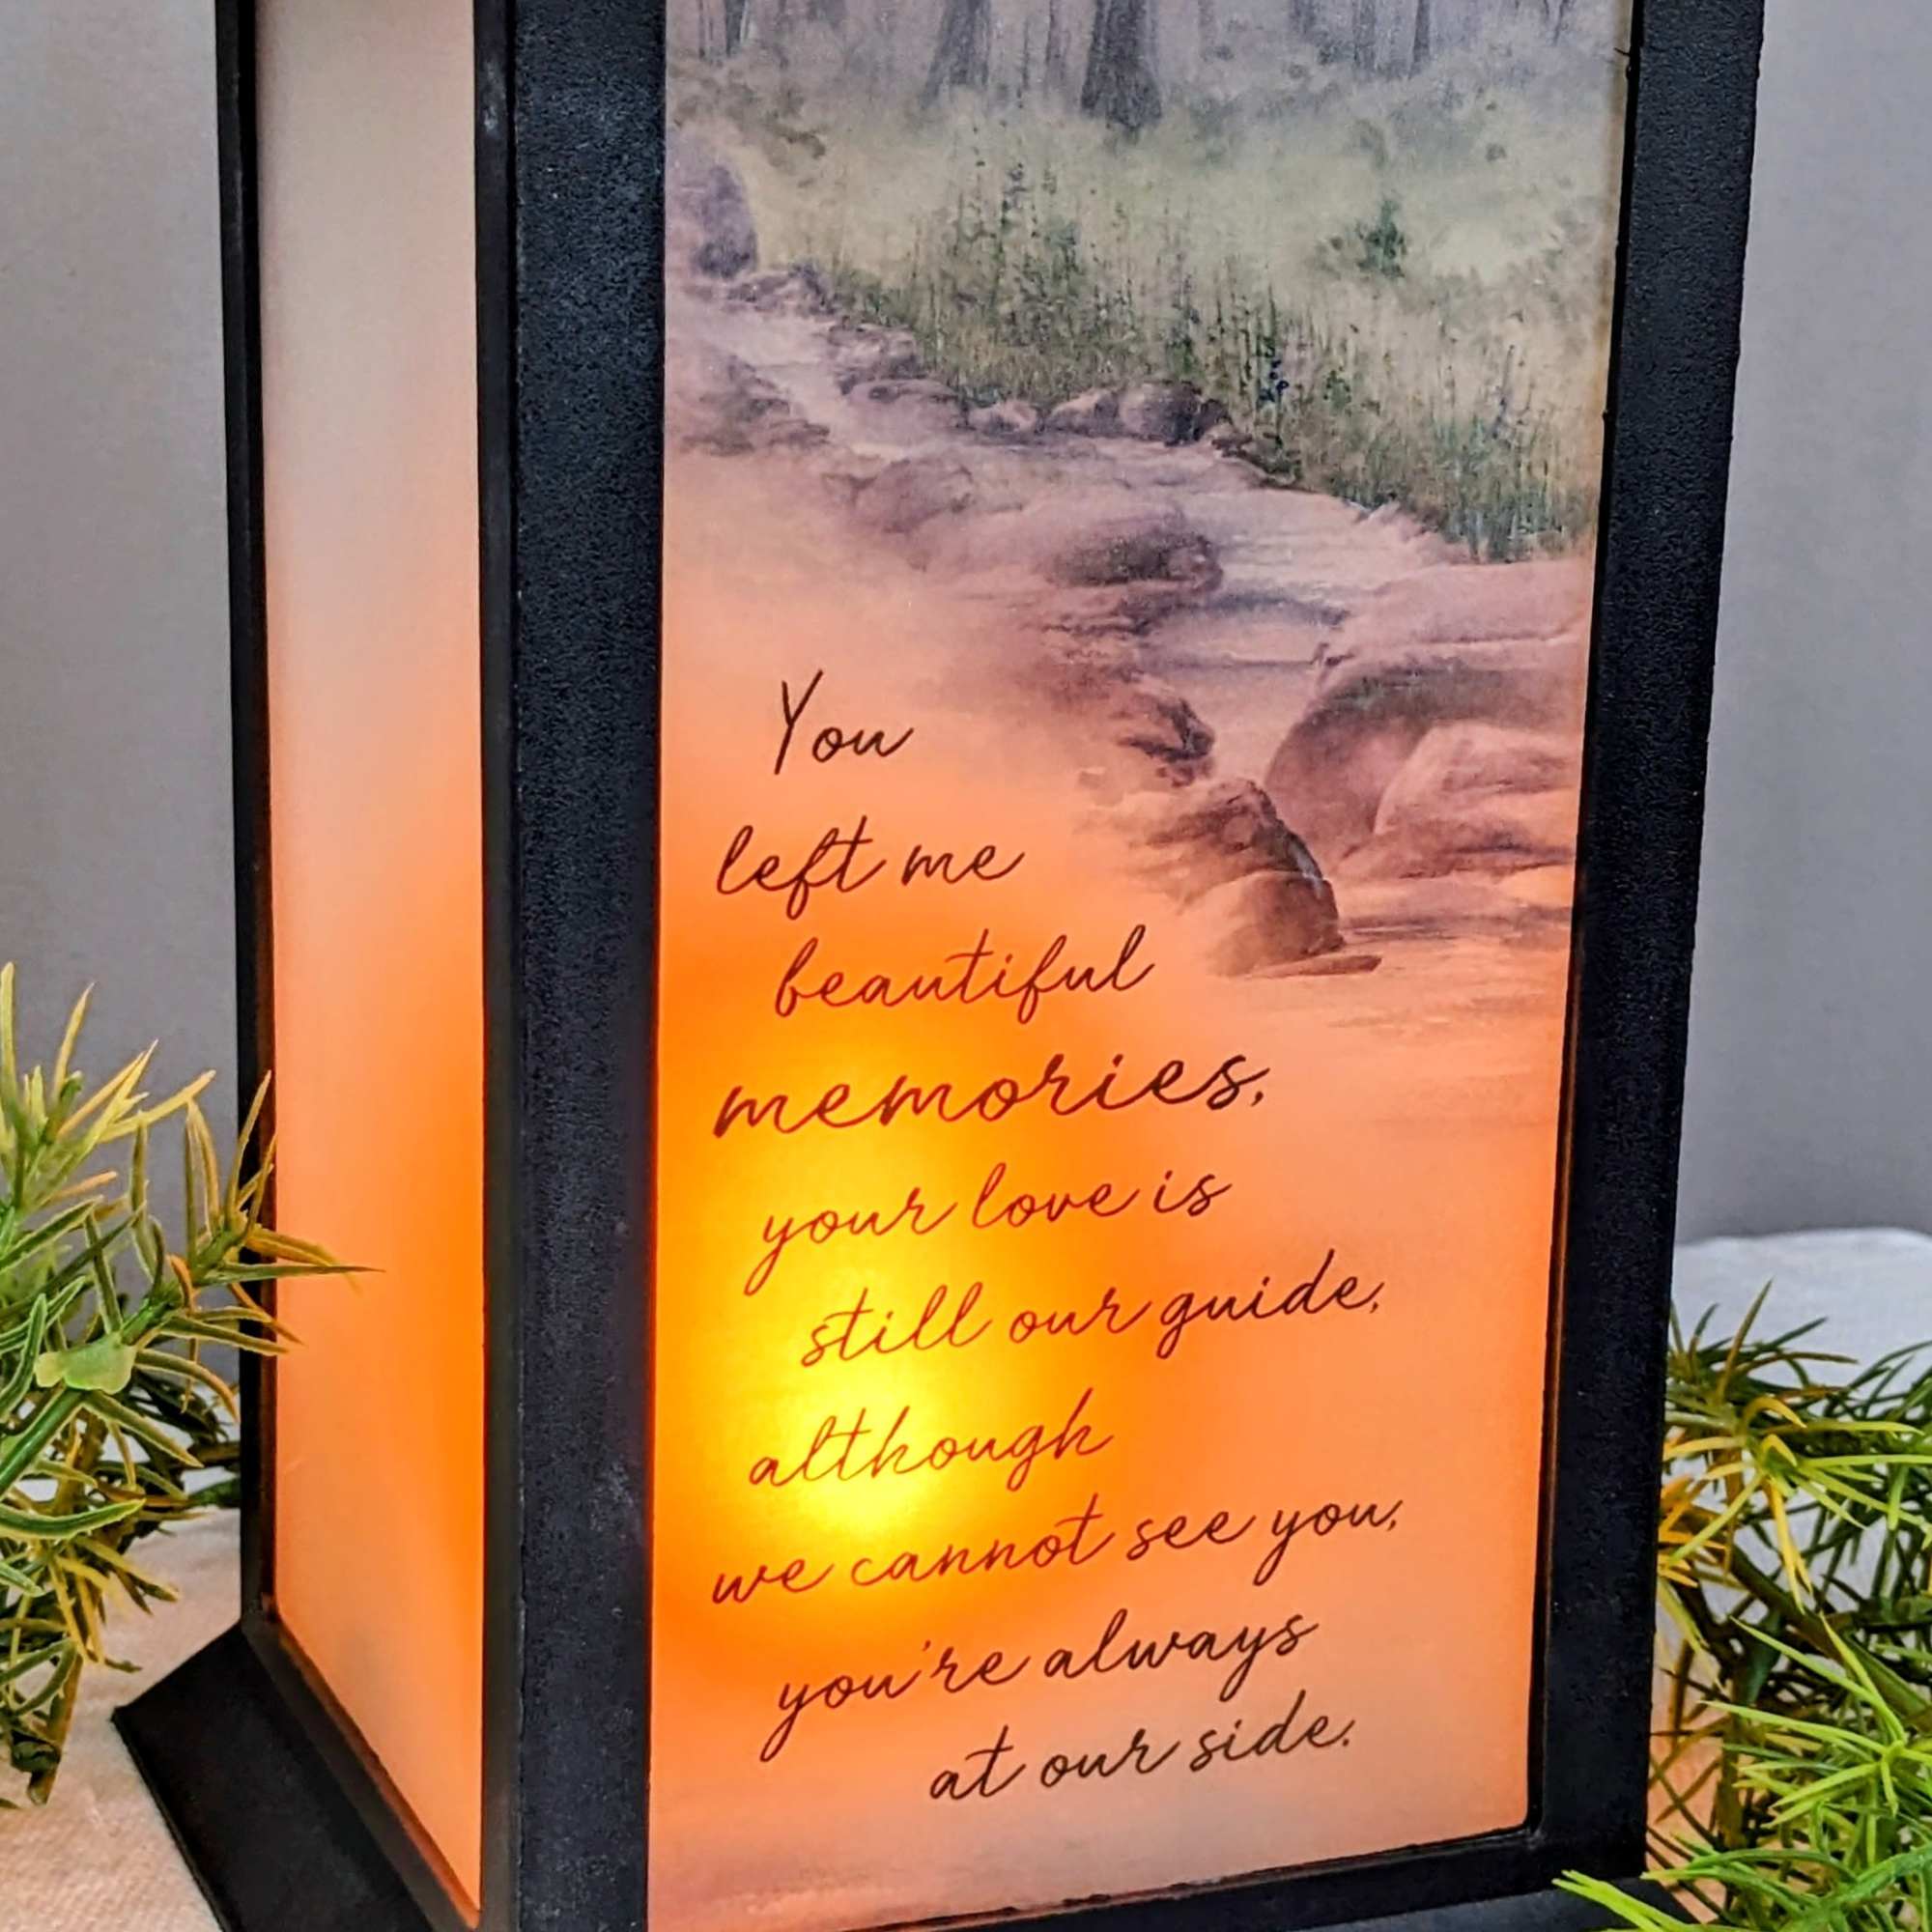 You
left me
beautiful
memories,
your love is
still our guide,
although
we cannot see you,
you're always
at our side.